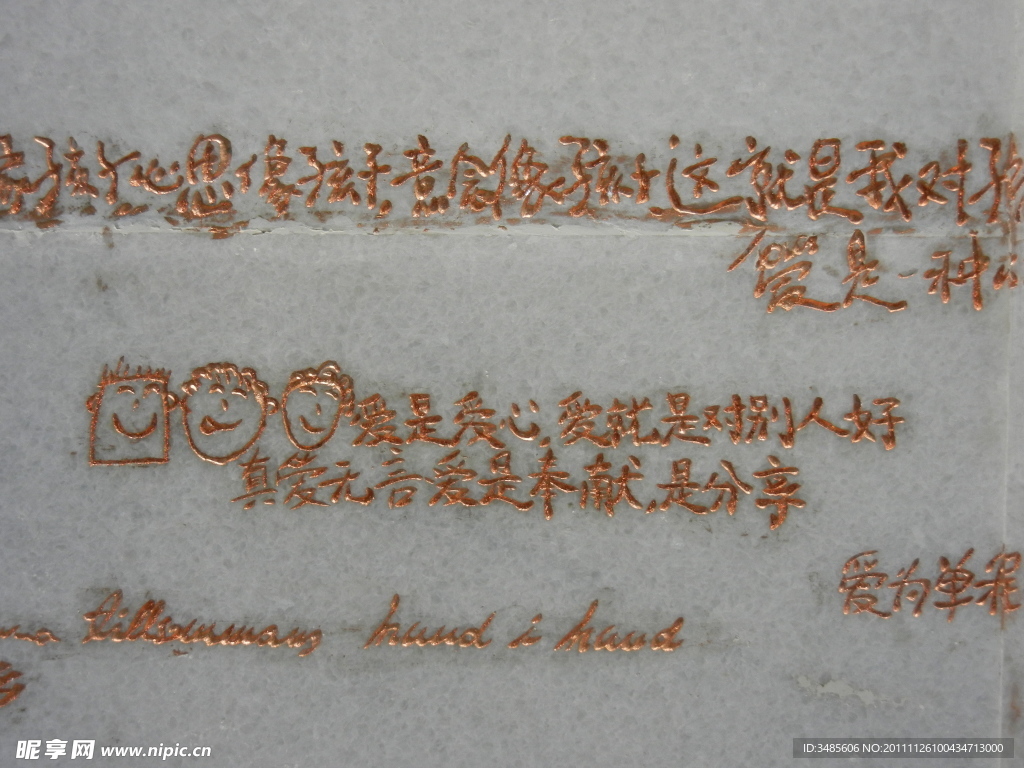 孩子心思像孩子,意念像孩子,这就是我对孩
爱是一种
爱是爱心,爱就是对别人好
真爱无言爱是奉献,是分享
爱为单程
tillsammans hand i hand
昵享网 www.nipic.cn
ID:3485606 NO:20111126100434713000